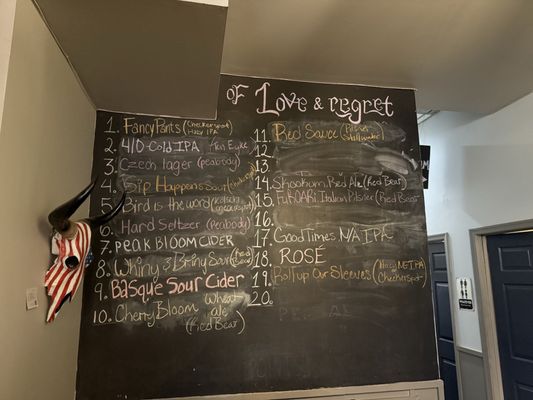 of Love & regret
1. Fancy Pants (Checkerspot Hazy IPA)
2. 410-Cold IPA
3. Czech lager (peabody)
4. Sip Happens Sour
5. Bird is the word
6. Hard Seltzer (peabody)
7. PEAK BLOOM CIDER
8. Whiny & Briny Sour (Red Bear)
9. Basque Sour Cider
10. Cherry Bloom Wheat ale (Red Bear)
11. Red Sauce (Pilsner Stillwater)
12.
13.
14. Shookum Red Ale (Red Bear)
15. FUKOARI Italian Pilsner (Red Bear)
16.
17. Good Times NA IPA
18. ROSÉ
19. Roll up Our Sleeves (Hazy NEIPA Checkerspot)
20.